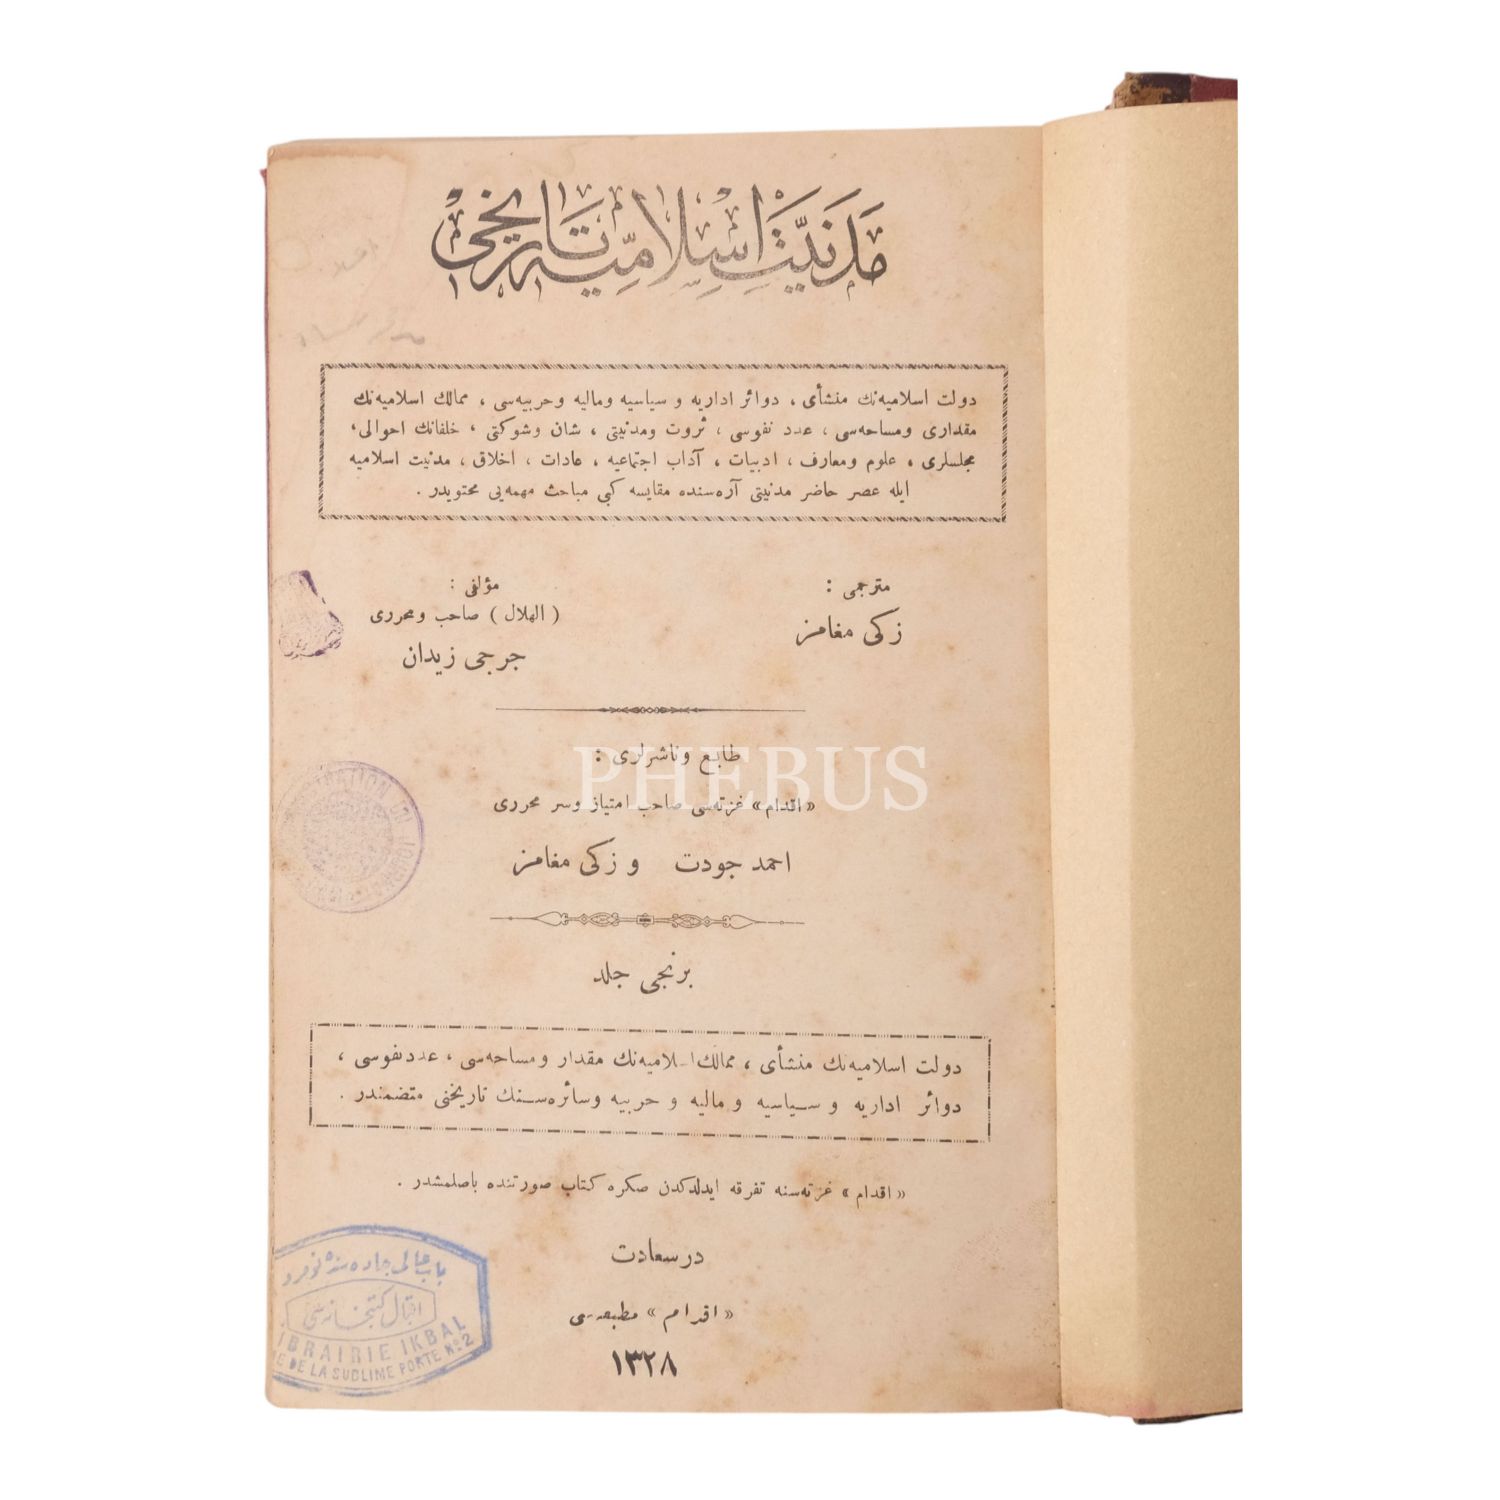 مدنيت اسلاميه تاريخى
دولت اسلاميه‌نك منشأى ، دوائر اداريه و سياسيه وماليه وحربيه‌سى ، ممالك اسلاميه‌نك
مقدارى ومساحه‌سى ، عدد نفوسى ، ثروت ومدنيتى ، شان وشوكتى ، خلفانك احوالى ،
مجلسلرى ، علوم ومعارف ، ادبيات ، آداب اجتماعيه ، عادات ، اخلاق ، مدنيت اسلاميه
ايله عصر حاضر مدنيتى آره‌سنده مقايسه كبى مباحث مهمه‌يى محتويدر .
مترجمى :
زكى مغامز
مؤلفى :
( الهلال ) صاحب ومحررى
جرجى زيدان
طابع وناشرلرى :
« اقدام » غزته‌سى صاحب امتياز وسر محررى
احمد جودت و زكى مغامز
PHEBUS
برنجى جلد
دولت اسلاميه‌نك منشأى ، ممالك اسلاميه‌نك مقدار ومساحه‌سى ، عدد نفوسى ،
دوائر اداريه و سياسيه و ماليه و حربيه وسائره‌سنك تاريخنى متضمندر .
« اقدام » غزته‌سنه تفرقه ايدلدكدن صكره كتاب صورتنده باصلمشدر .
درسعادت
« اقدام » مطبعه‌سى
١٣٢٨
باب عالى جاده سنده نومرو
اقبال كتبخانه سى
IBRAIRIE IKBAL
E DE LA SUBLIME PORTE No 2